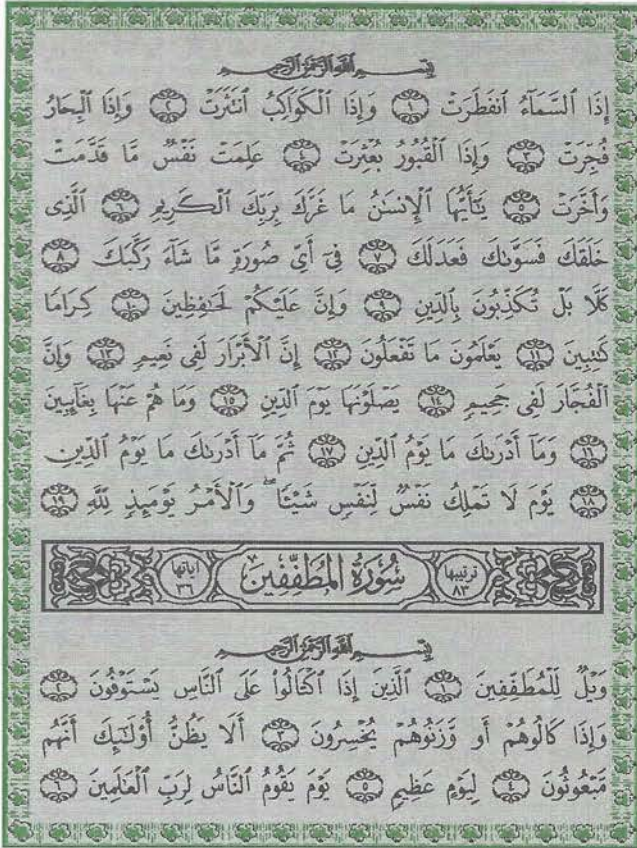 بِسْمِ ٱللَّهِ ٱلرَّحْمَٰنِ ٱلرَّحِيمِ
إِذَا ٱلسَّمَآءُ ٱنفَطَرَتْ ١ وَإِذَا ٱلْكَوَاكِبُ ٱنتَثَرَتْ ٢ وَإِذَا ٱلْبِحَارُ
فُجِّرَتْ ٣ وَإِذَا ٱلْقُبُورُ بُعْثِرَتْ ٤ عَلِمَتْ نَفْسٌ مَّا قَدَّمَتْ
وَأَخَّرَتْ ٥ يَٰٓأَيُّهَا ٱلْإِنسَٰنُ مَا غَرَّكَ بِرَبِّكَ ٱلْكَرِيمِ ٦ ٱلَّذِى
خَلَقَكَ فَسَوَّىٰكَ فَعَدَلَكَ ٧ فِىٓ أَىِّ صُورَةٍ مَّا شَآءَ رَكَّبَكَ ٨
كَلَّا بَلْ تُكَذِّبُونَ بِٱلدِّينِ ٩ وَإِنَّ عَلَيْكُمْ لَحَٰفِظِينَ ١٠ كِرَامًا
كَٰتِبِينَ ١١ يَعْلَمُونَ مَا تَفْعَلُونَ ١٢ إِنَّ ٱلْأَبْرَارَ لَفِى نَعِيمٍ ١٣ وَإِنَّ
ٱلْفُجَّارَ لَفِى جَحِيمٍ ١٤ يَصْلَوْنَهَا يَوْمَ ٱلدِّينِ ١٥ وَمَا هُمْ عَنْهَا بِغَآئِبِينَ
١٦ وَمَآ أَدْرَىٰكَ مَا يَوْمُ ٱلدِّينِ ١٧ ثُمَّ مَآ أَدْرَىٰكَ مَا يَوْمُ ٱلدِّينِ
١٨ يَوْمَ لَا تَمْلِكُ نَفْسٌ لِّنَفْسٍ شَيْـًٔا ۖ وَٱلْأَمْرُ يَوْمَئِذٍ لِّلَّهِ ١٩
ترتيبها ٨٣ سُورَةُ المُطَفِّفِين آياتها ٣٦
بِسْمِ ٱللَّهِ ٱلرَّحْمَٰنِ ٱلرَّحِيمِ
وَيْلٌ لِّلْمُطَفِّفِينَ ١ ٱلَّذِينَ إِذَا ٱكْتَالُوا۟ عَلَى ٱلنَّاسِ يَسْتَوْفُونَ ٢
وَإِذَا كَالُوهُمْ أَو وَّزَنُوهُمْ يُخْسِرُونَ ٣ أَلَا يَظُنُّ أُو۟لَٰٓئِكَ أَنَّهُم
مَّبْعُوثُونَ ٤ لِيَوْمٍ عَظِيمٍ ٥ يَوْمَ يَقُومُ ٱلنَّاسُ لِرَبِّ ٱلْعَٰلَمِينَ ٦